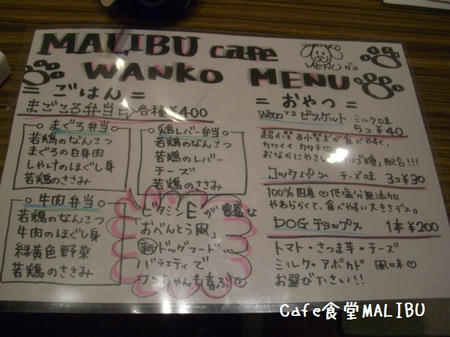 MALIBU cafe
WANKO MENU
MENU
= ごはん =
まごころ弁当 各種 ¥400
まぐろ弁当
若鶏のなんこつ
まぐろの白身肉
しゃけのほぐし身
若鶏のささみ
鶏レバー弁当
若鶏のなんこつ
若鶏のレバー
チーズ
若鶏のささみ
牛肉弁当
若鶏のなんこつ
牛肉のほぐし身
緑黄色野菜
若鶏のささみ
ビタミンEが豊富な
おべんとう風
新ドッグフード…
バラエティで
ワンちゃんも喜ぶ
= おやつ =
ミルク味
5コ ¥40
カワイイ カタチ
チーズ味
3コ ¥30
100%国産 低塩分 無添加
やわらかくて、食べやすい大きさデス。
DOGチョップス 1本 ¥200
トマト・さつま芋・チーズ
ミルク・アボカド 風味
お選び下さい!!
Cafe食堂MALIBU